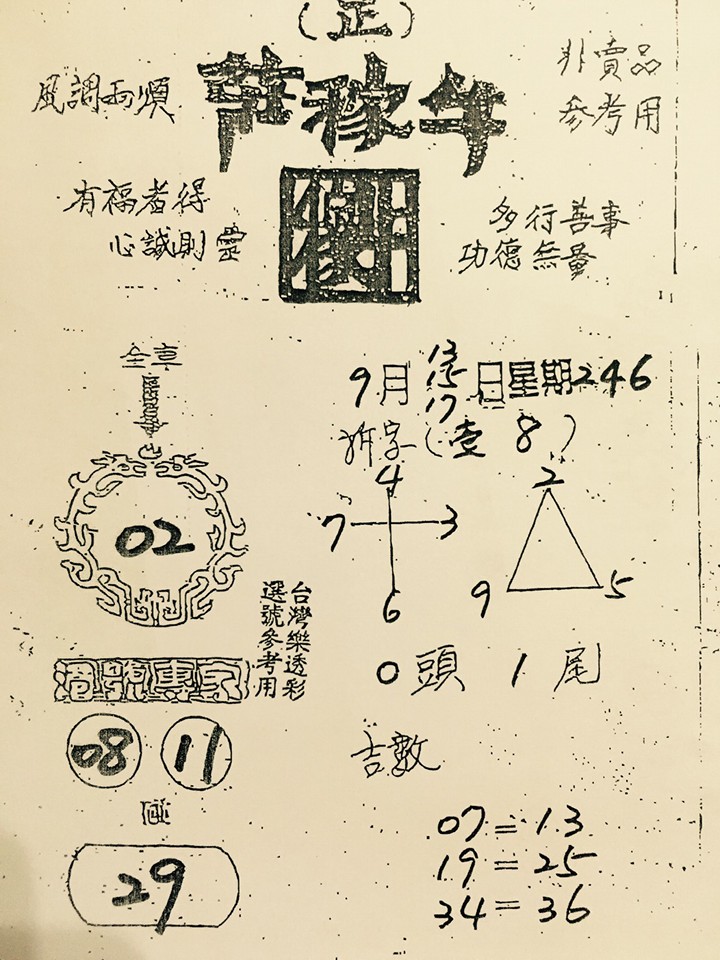 (正)
風調雨順
非賣品
參考用
有福者得
心誠則靈
多行善事
功德無量
全車
9月 13 15 17 日星期246
拆字(壹 8)
4
7 3
6
2
9 5
02
台灣樂透彩
選號參考用
0頭 1尾
專家
08 11
吉數
29
07=13
19=25
34=36